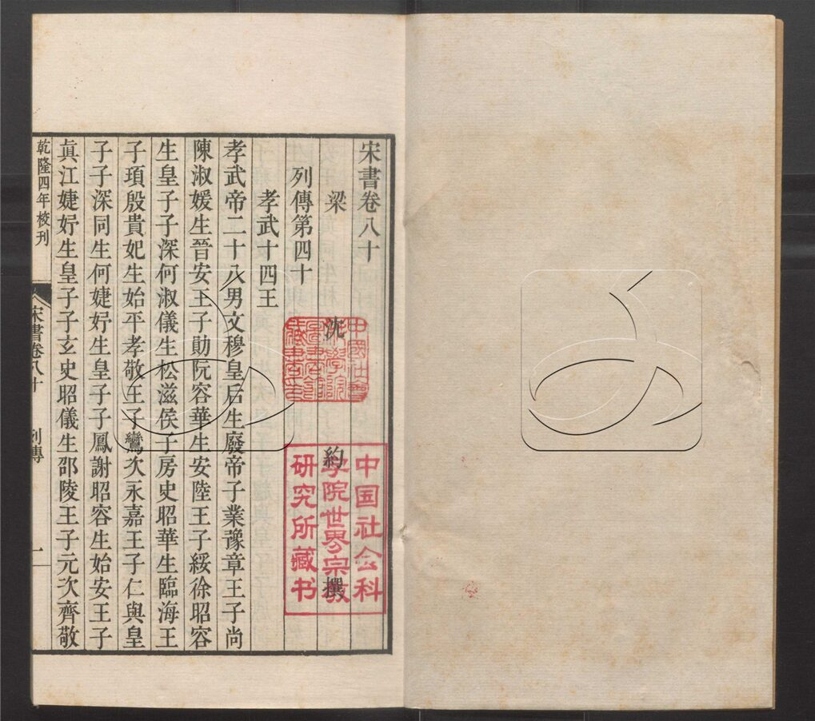 宋書卷八十
梁 沈 約 撰
列傳第四十
孝武十四王
孝武帝二十八男文穆皇后生廢帝子業豫章王子尚
陳淑媛生晉安王子勛阮容華生安陸王子綏徐昭容
生皇子子深何淑儀生松滋侯子房史昭華生臨海王
子頊殷貴妃生始平孝敬王子鸞次永嘉王子仁與皇
子子深同生何婕妤生皇子子鳳謝昭容生始安王子
真江婕妤生皇子子玄史昭儀生邵陵王子元次齊敬
乾隆四年校刊
宋書卷八十
列傳
一
中国社会科
学院世界宗教
研究所藏书
中國社會
科學院
圖書館
藏書章